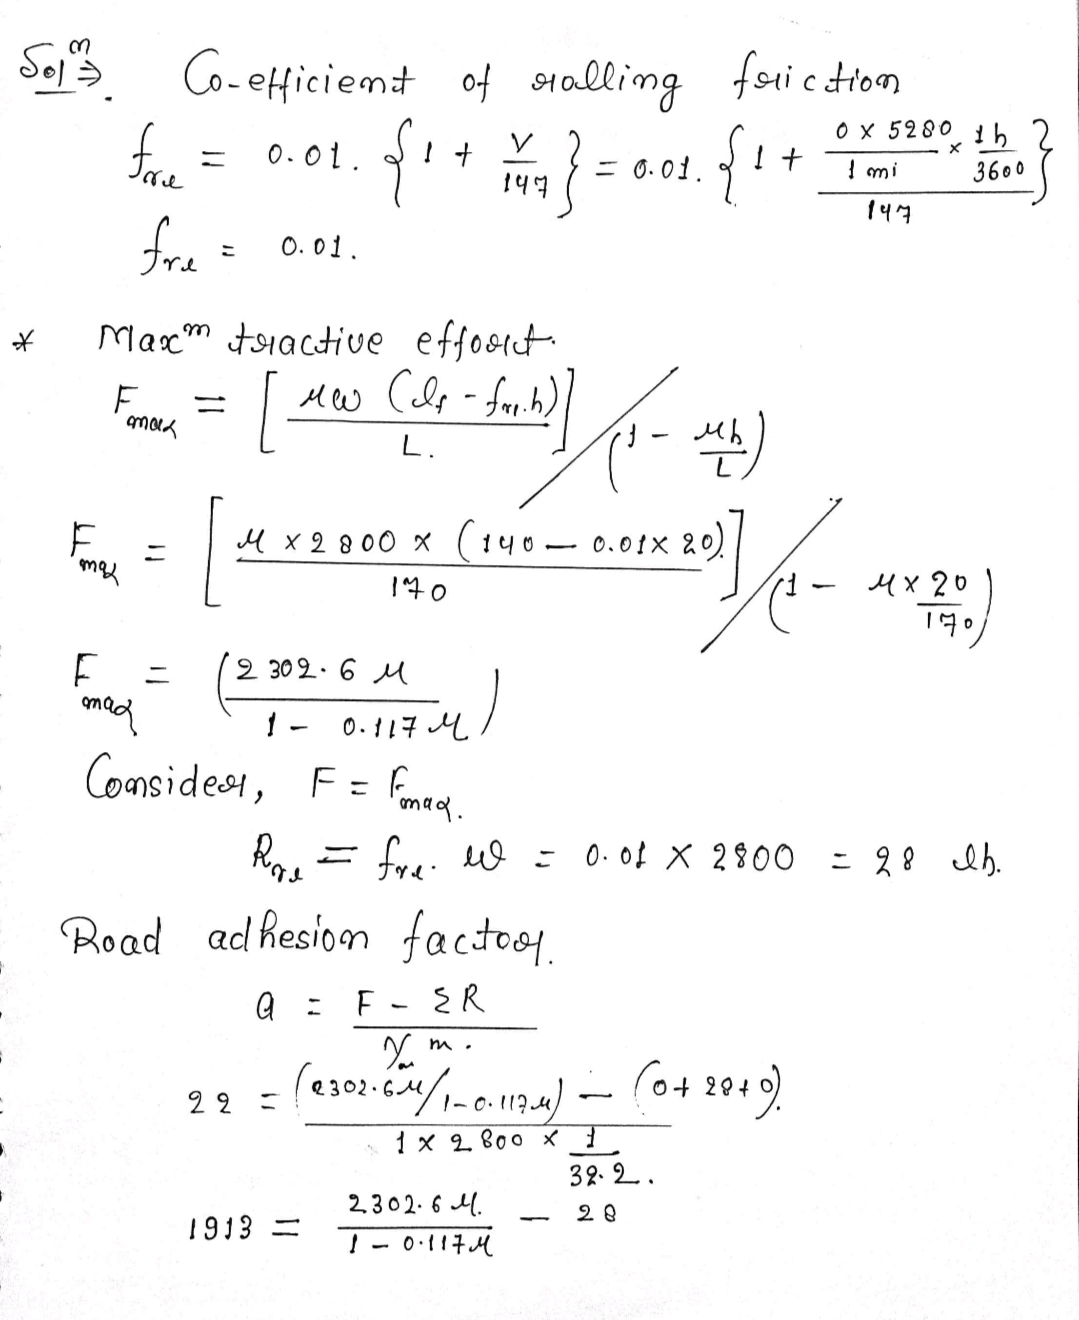 Solⁿ ⇒. Co-efficient of rolling friction
f_rl = 0.01. { 1 + V/147 } = 0.01. { 1 + (0 x 5280 / 1 mi x 1h / 3600) / 147 }
f_rl = 0.01.
* Maxᵐ tractive effort.
F_max = [ μw (l_f - f_rl.h) / L. ] / (1 - μh/L)
F_max = [ μ x 2800 x (140 - 0.01x 20). / 170 ] / (1 - μx20/170)
F_max = ( 2302.6 μ / 1 - 0.117 μ )
Consider, F = F_max.
R_rl = f_rl. w = 0.01 x 2800 = 28 lb.
Road adhesion factor.
a = F - ΣR / γ_m m.
22 = (2302.6μ / 1-0.117μ) - (0+28+0). / 1 x 2800 x 1/32.2.
1913 = 2302.6 μ. / 1 - 0.117μ - 28